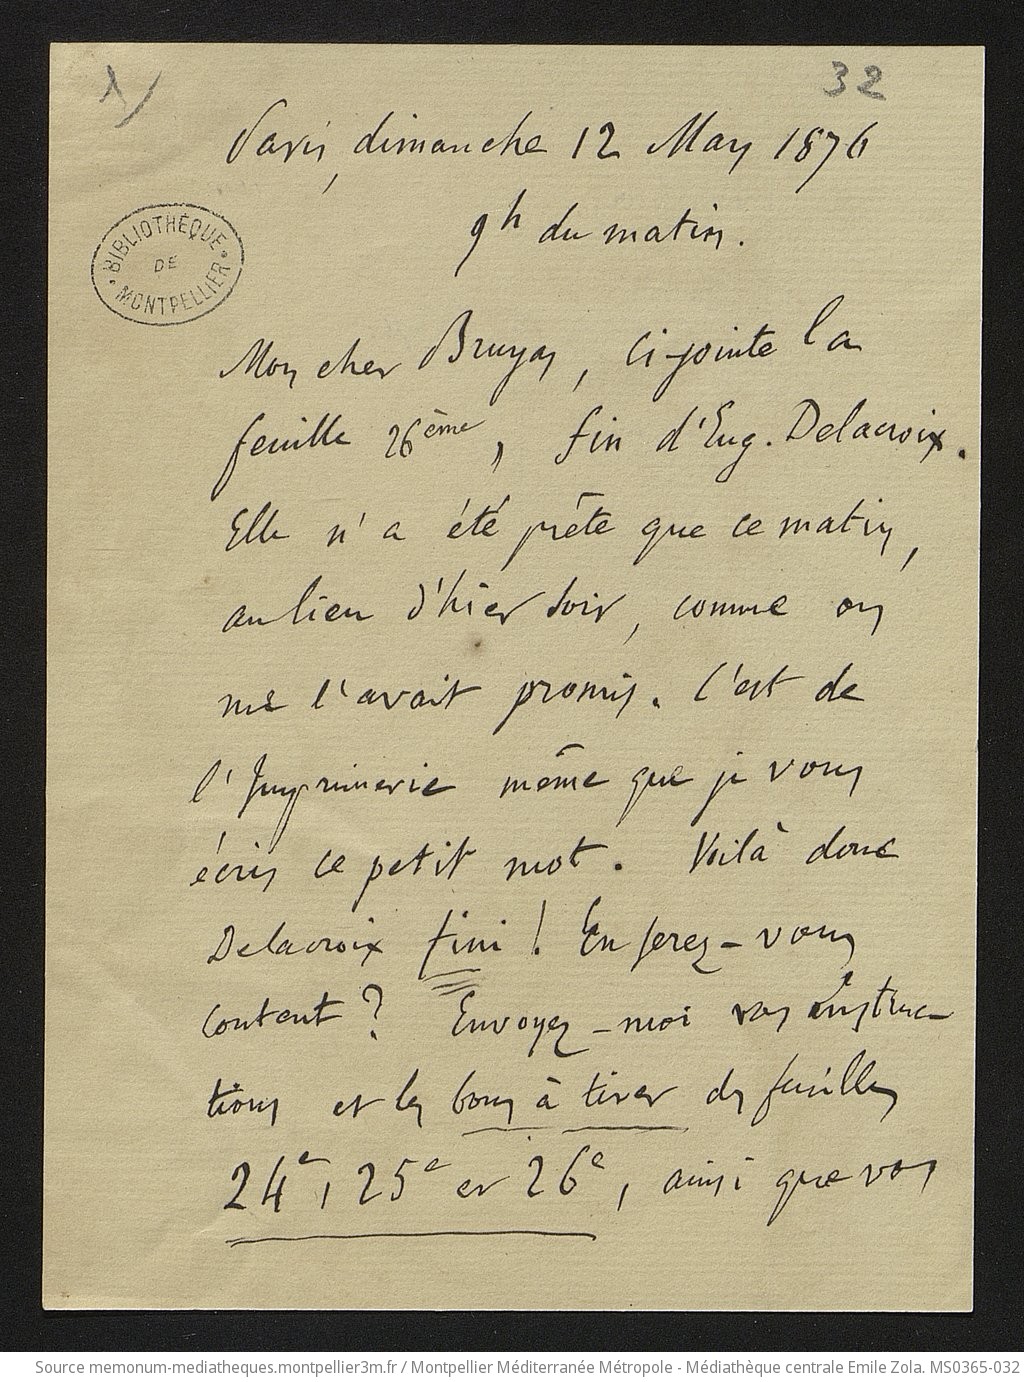 1/
32
Paris, dimanche 12 Mars 1876
9h du matin.
BIBLIOTHÈQUE
DE
MONTPELLIER
Mon cher Bruyas, ci-jointe la
feuille 26ème, fin d'Eug. Delacroix.
Elle n'a été prête que ce matin,
au lieu d'hier soir, comme on
me l'avait promis. C'est de
l'Imprimerie même que je vous
écris ce petit mot. Voilà donc
Delacroix fini! En serez-vous
content? Envoyez-moi vos instruc-
tions et les bons à tirer des feuilles
24e, 25e et 26e, ainsi que vos
Source memonum-mediatheques.montpellier3m.fr / Montpellier Méditerranée Métropole - Médiathèque centrale Emile Zola. MS0365-032